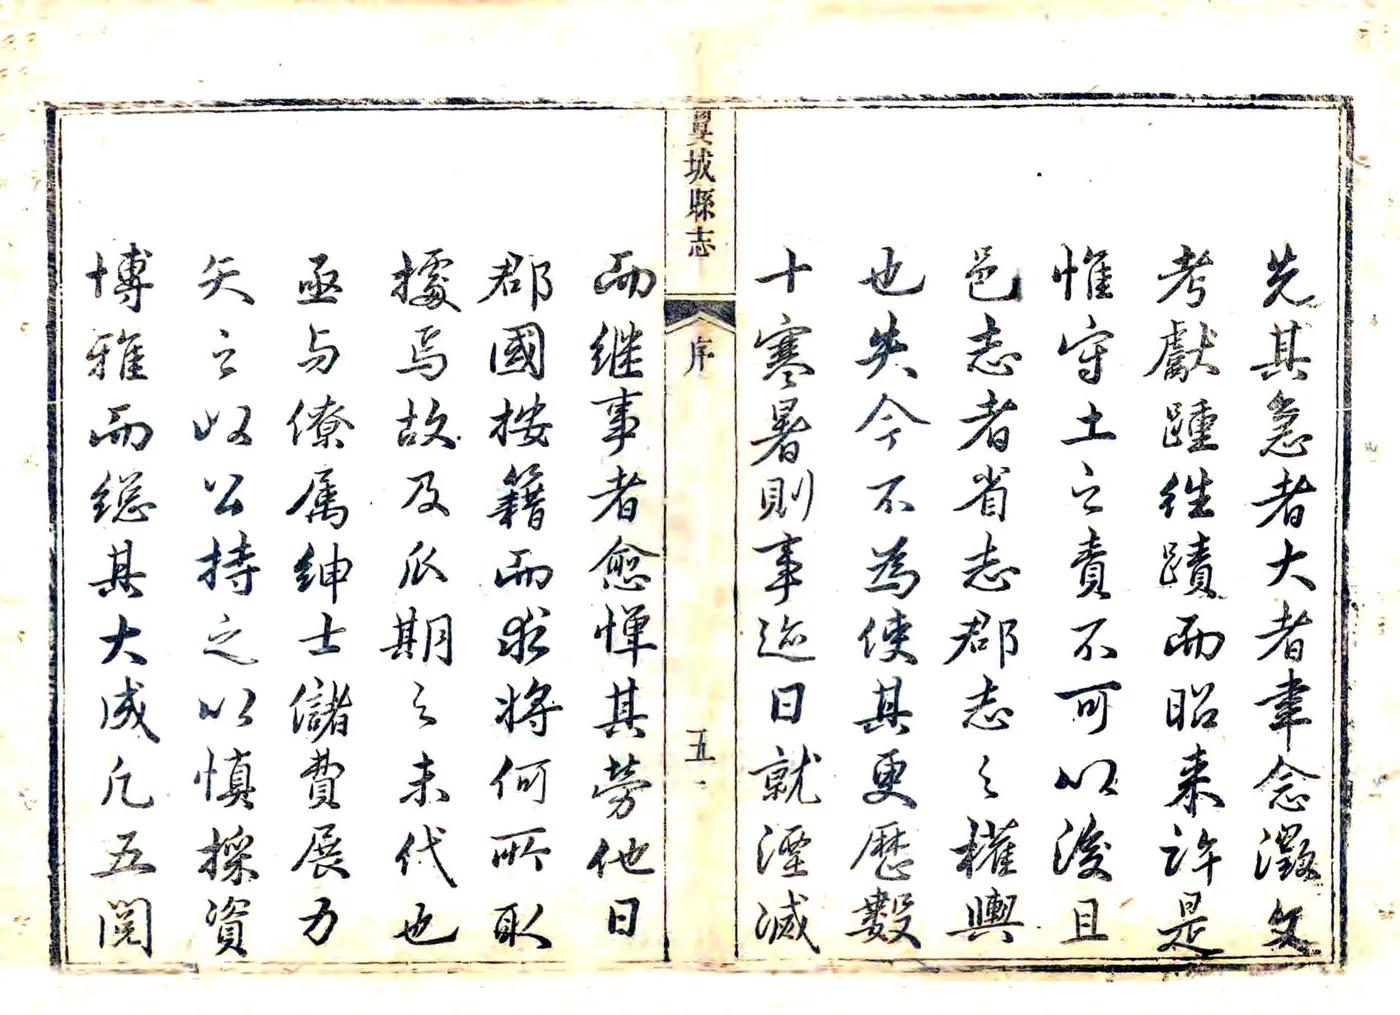 先其急者大者聿念徵文
考獻踵往蹟而昭来許是
惟守土之責不可以後且
邑志者省志郡志之權輿
也失今不為使其更歷數
十寒暑則事迹日就湮滅
翼城縣志
序
五
而继事者愈憚其劳他日
郡國按籍而求將何所取
據焉故及瓜期之未代也
亟与僚属紳士儲費展力
矢之以公持之以慎採資
博雅而総其大成凡五閲